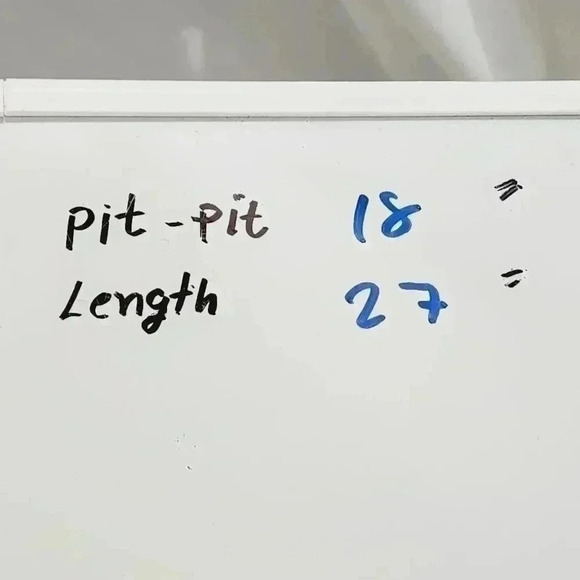 Pit-Pit 18 "
Length 27 "